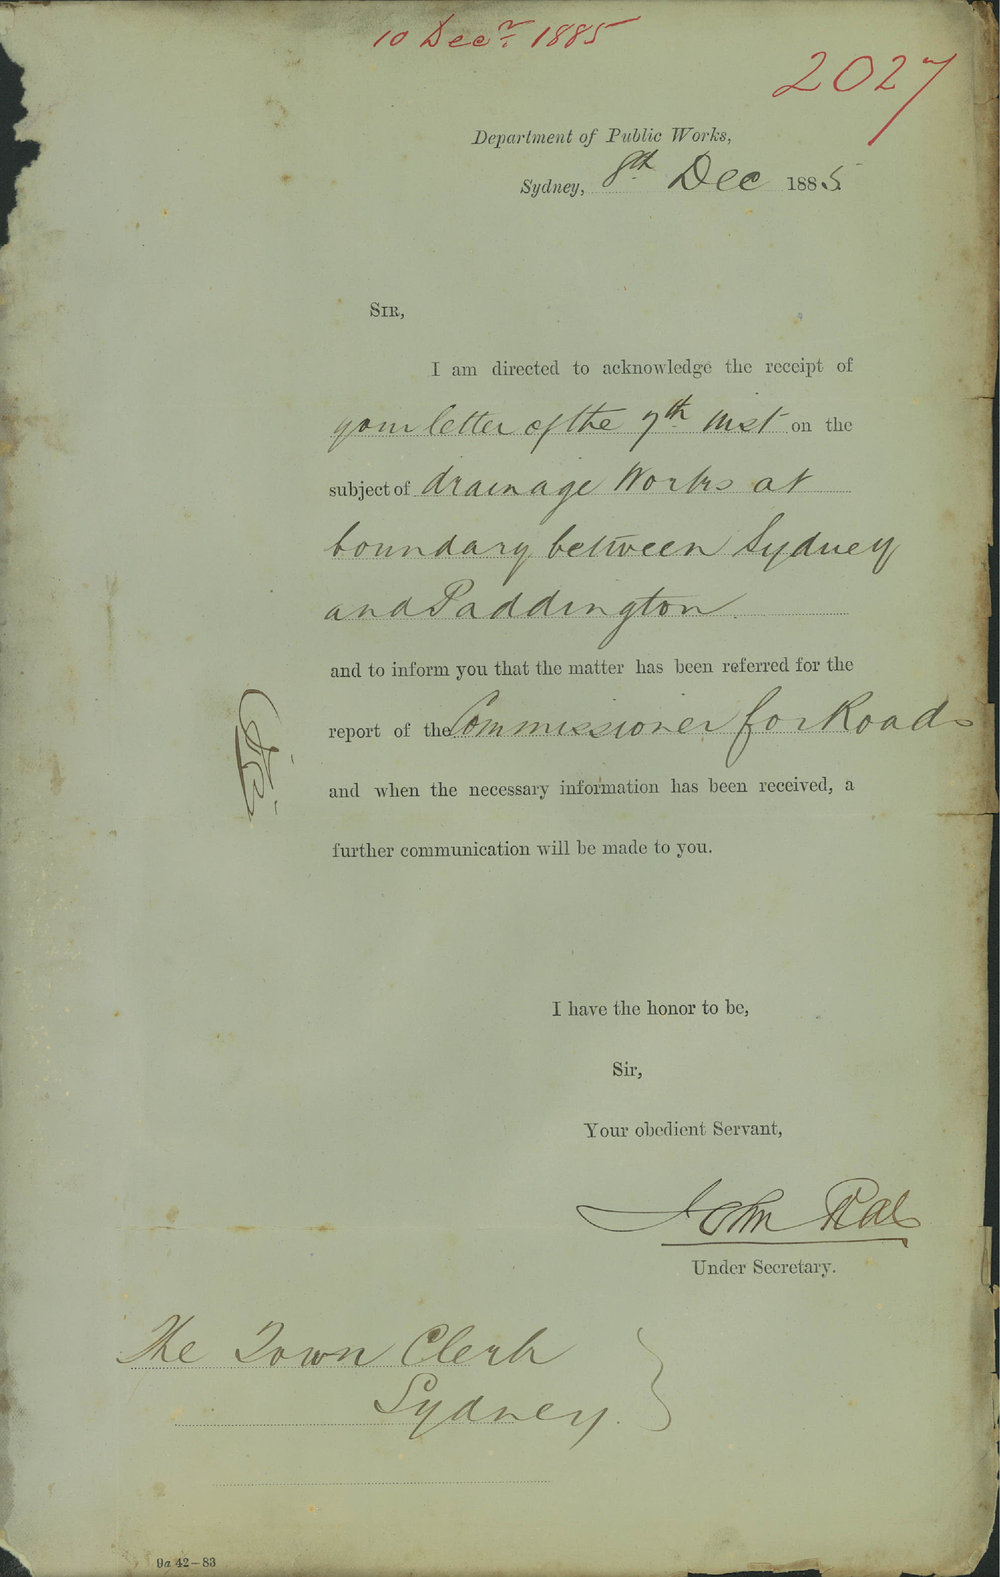 10 Decr. 1885
2027
Department of Public Works,
Sydney, 8th Dec 1885.
SIR,
I am directed to acknowledge the receipt of
your letter of the 7th. Inst on the
subject of drainage Works at
boundary between Sydney
and Paddington.
and to inform you that the matter has been referred for the
report of the Commissioner for Roads
and when the necessary information has been received, a
further communication will be made to you.
I have the honor to be,
Sir,
Your obedient Servant,
John Rae
Under Secretary.
The Town Clerk
Sydney.
9a 42—83